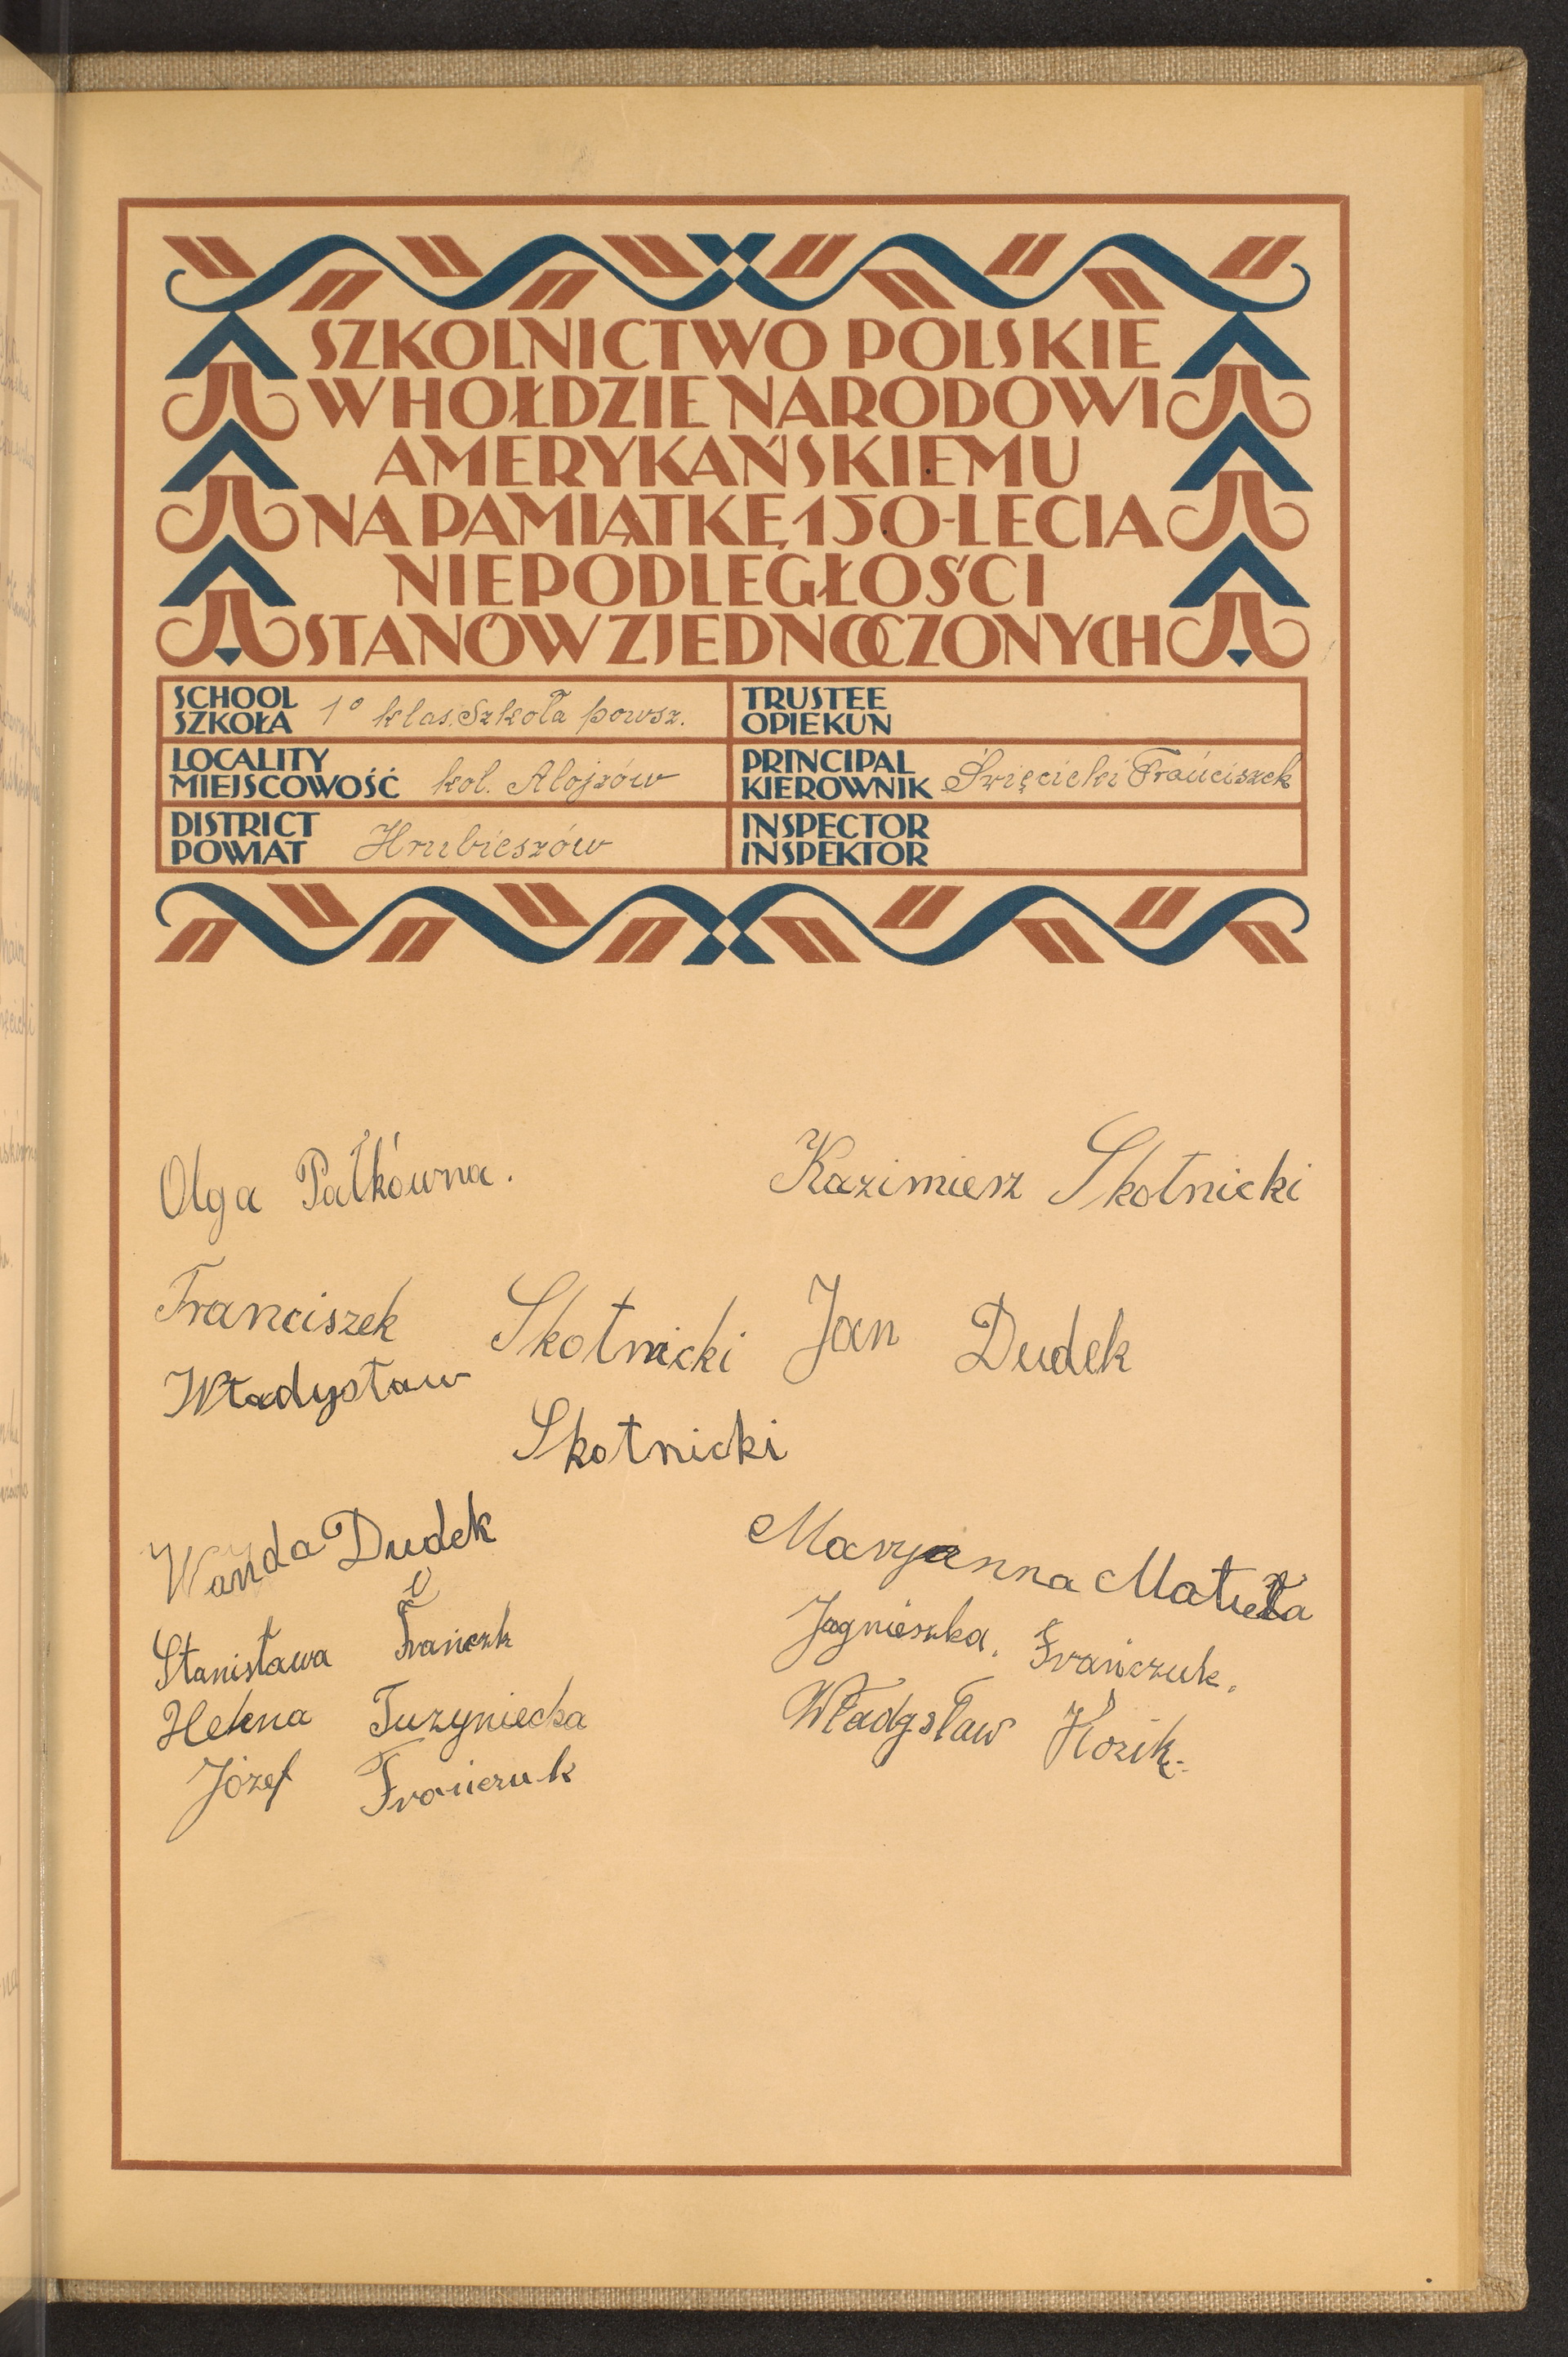 SZKOLNICTWO POLSKIE
W HOŁDZIE NARODOWI
AMERYKAŃSKIEMU
NA PAMIĄTKĘ 150-LECIA
NIEPODLEGŁOŚCI
STANÓW ZJEDNOCZONYCH
SCHOOL
SZKOŁA 1º klas. Szkoła powsz.
TRUSTEE
OPIEKUN
LOCALITY
MIEJSCOWOŚĆ kol. Alojzów
PRINCIPAL
KIEROWNIK Święcicki Franciszek
DISTRICT
POWIAT Hrubieszów
INSPECTOR
INSPEKTOR
Olga Pałkówna.
Kazimierz Skotnicki
Franciszek Skotnicki
Jan Dudek
Władysław
Skotnicki
Wanda Dudek
Maryanna Matiełła
Stanisława
Jagnieszka. Frańczuk.
Helena Tuzyniecka
Władysław Kozik.
Józef Franczuk